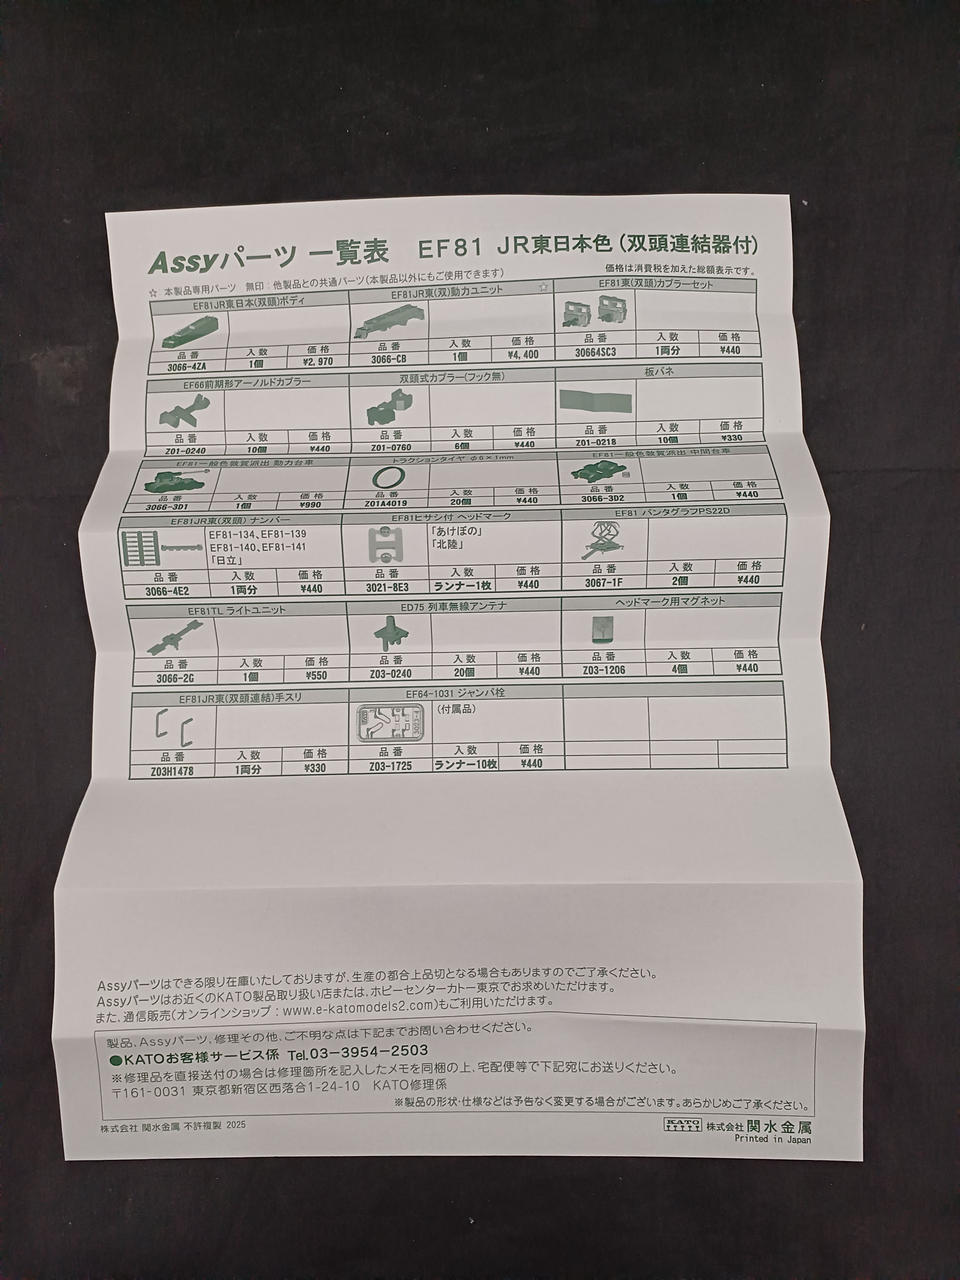 Assyパーツ 一覧表 EF81 JR東日本色(双頭連結器付)
☆ 本製品専用パーツ 無印:他製品との共通パーツ(本製品以外にもご使用できます) 価格は消費税を加えた総額表示です。
EF81JR東日本(双頭)ボディ EF81JR東(双)動力ユニット ☆ EF81東(双頭)カプラーセット
品番 入数 価格 品番 入数 価格 品番 入数 価格
3066-4ZA 1個 ¥2,970 3066-CB 1個 ¥4,400 30664SC3 1両分 ¥440
EF66前期形アーノルドカプラー 双頭式カプラー(フック無) 板バネ
品番 入数 価格 品番 入数 価格 品番 入数 価格
Z01-0240 10個 ¥440 Z01-0760 6個 ¥440 Z01-0218 10個 ¥330
EF81一般色敦賀派出 動力台車 トラクションタイヤ φ6×1mm EF81一般色敦賀派出 中間台車
品番 入数 価格 品番 入数 価格 品番 入数 価格
3066-3D1 1個 ¥990 Z01A4019 20個 ¥440 3066-3D2 1個 ¥440
EF81JR東(双頭) ナンバー EF81ヒサシ付 ヘッドマーク EF81 パンタグラフPS22D
EF81-134、EF81-139 「あけぼの」
EF81-140、EF81-141 「北陸」
「日立」
品番 入数 価格 品番 入数 価格 品番 入数 価格
3066-4E2 1両分 ¥440 3021-8E3 ランナー1枚 ¥440 3067-1F 2個 ¥440
EF81TL ライトユニット ED75 列車無線アンテナ ヘッドマーク用マグネット
品番 入数 価格 品番 入数 価格 品番 入数 価格
3066-2G 1個 ¥550 Z03-0240 20個 ¥440 Z03-1206 4個 ¥440
EF81JR東(双頭連結)手スリ EF64-1031 ジャンパ栓
(付属品)
品番 入数 価格 品番 入数 価格
Z03H1478 1両分 ¥330 Z03-1725 ランナー10枚 ¥440
Assyパーツはできる限り在庫いたしておりますが、生産の都合上品切となる場合もありますのでご了承ください。
Assyパーツはお近くのKATO製品取り扱い店または、ホビーセンターカトー東京でお求めいただけます。
また、通信販売(オンラインショップ:www.e-katomodels2.com)もご利用いただけます。
製品、Assyパーツ、修理その他、ご不明な点は下記までお問い合わせください。
●KATOお客様サービス係 Tel.03-3954-2503
※修理品を直接送付の場合は修理箇所を記入したメモを同梱の上、宅配便等で下記宛にお送りください。
〒161-0031 東京都新宿区西落合1-24-10 KATO修理係
※製品の形状・仕様などは予告なく変更する場合がございます。あらかじめご了承ください。
株式会社 関水金属 不許複製 2025 KATO 株式会社 関水金属
Printed in Japan